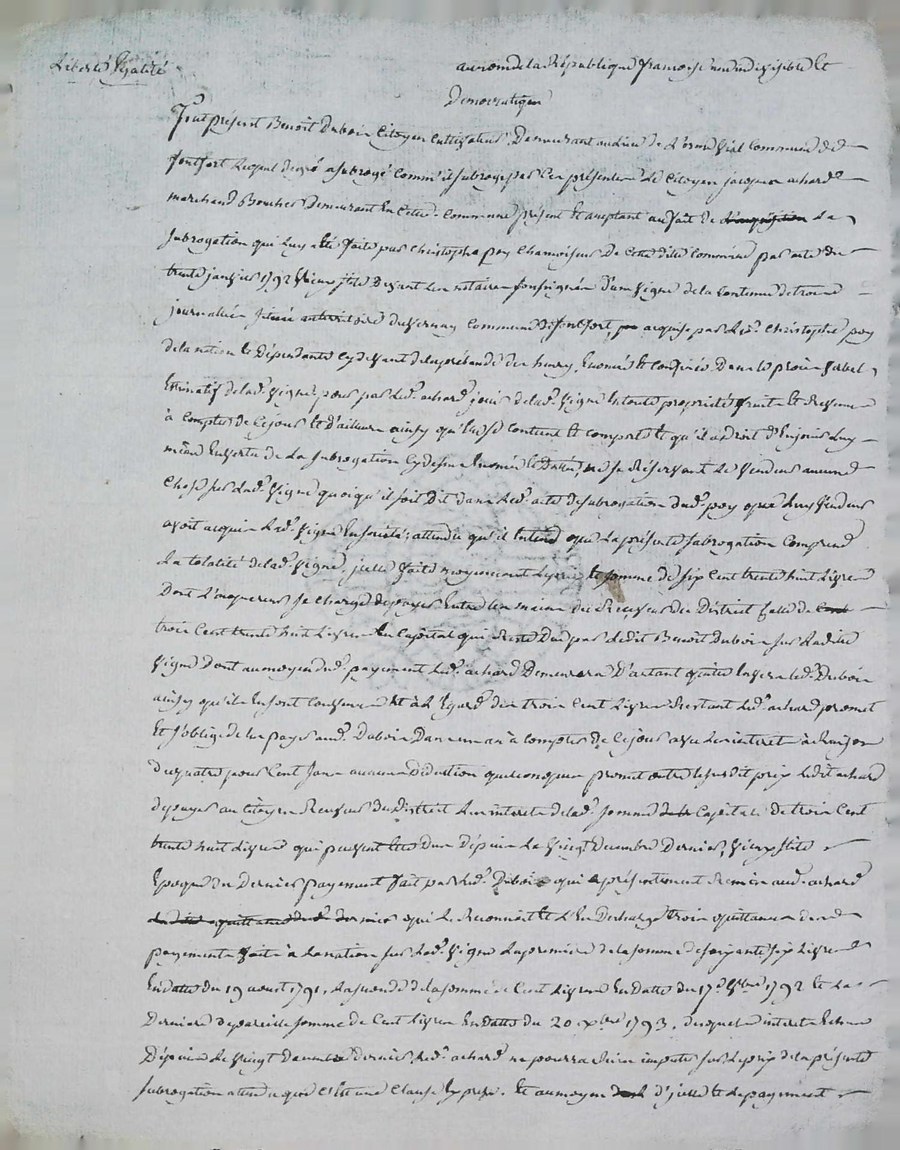 Liberté Egalité
au nom de la République française une indivisible et
Democratique
fut présent Benoit Duboin Citoyen cultivateur Demeurant au lieu de commune de
fontfort Lequel de gré a subrogé comm' il subroge par Ces présentes Le Citoyen jacques achard
marchand Boucher Demeurant en cette Commune présent et acceptant au fait de la
subrogation qui luy a été faite par Christophe poy Chamoiseur de cette ditte Commune par acte du
trente janvier 1792 vieux stile Devant les notaires soussignés d'une vigne de la contenue de trois
journallées située au territoire du Vernay commune de fontfort, acquise par led. Christophe poy
de la nation et Dépendante cy devant de la prébande des Inomée et confinée Dans le procès verbal
Estimatif de lad. vigne, pour par led. achard jouir de lad. vigne en toute propriété fruits et Revenus
à compter de Ce jour et d'ailleurs ainsy qu'elle se contient et comporte et qu'il a droit d'en jouir luy
même en vertu de la subrogation cy dessus Enoncée et Dattée, ne se Réservant Le vendeur aucune
Chose sur lad. vigne quoiqu'il soit Dit dans led. acte de subrogation dud. poy que luy vendeur
avoit acquis lad. vigne en société; attendu qu'il Entend que La présente subrogation Comprend
La totalité de lad. vigne, jcelle faite moyennant le prix et somme de six Cent trente huit livres
Dont L'acquereur se charge de payer Entre les mains du Receveur du District Celle de
trois Cent trente huit livres En Capital qui Reste Due par ledit Benoit Duboin sur Ladite
vigne Dont au moyen dud. payement led. achard Demeurera D'autant quitte Envers led. Duboin
ainsy qu'ils en sont convenus Et à L'Egard des trois Cent Livres Restant led. achard promet
Et s'oblige de les payer aud. Duboin Dans un an à compter de Ce jour avec les interet à Raison
du quatre pour Cent sans aucune Déduction quelconque promet outre le susdit prix ledit achard
de payer au Citoyen Receveur du District Les interets de lad. somme Capitale de trois Cent
trente huit livres qui peuvent être dus Depuis Le vingt Decembre Dernier, vieux stile
Epoque du Dernier payement fait par led. Duboin qui a présentement Remis aud. achard
qui Le Reconnoit et L'En Decharge trois quittances de
payements faits à La nation sur lad. vigne La premiere de la somme de soixante six Livres
En datte du 19 aout 1791, La seconde de la somme de Cent Livres En Datte du 17 1792 Et La
Derniere de pareille somme de Cent Livres En Datte du 20 xbre 1793, desquels interets Echus
Depuis Le vingt Decembre Dernier, led. achard ne pourra Rien imputer sur Le prix de la présente
subrogation attendu que C'est une Clause Expresse. Et au moyen d'jcelle et du payement